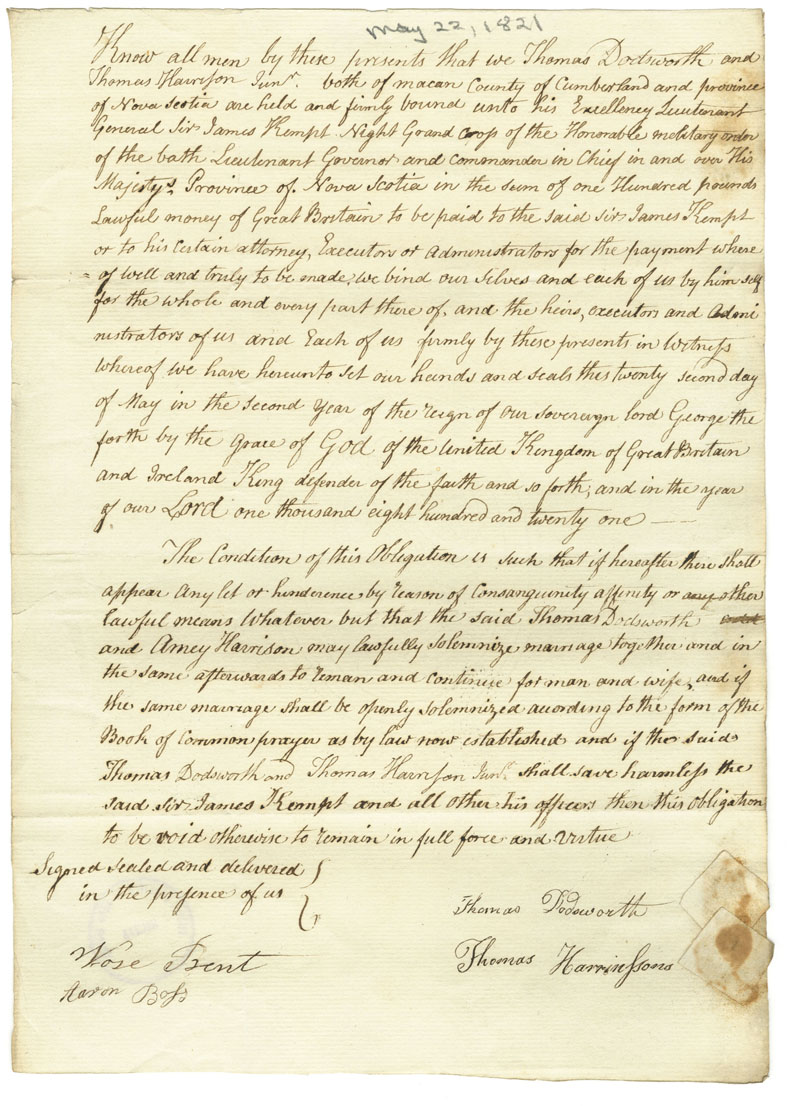 May 22, 1821
Know all men by these presents that we Thomas Dodsworth and
Thomas Harrison Junr. both of macan County of Cumberland and province
of Nova Scotia are held and firmly bound unto his Excellency Lieutenant
General Sir James Kempt Night Grand Cross of the Honorable military order
of the bath Lieutenant Governor and commander in Chief in and over His
Majestys Province of Nova Scotia in the sum of one Hundred pounds
Lawful money of Great Britain to be paid to the said Sir James Kempt
or to his Certain attorney, Executors or Administrators for the payment where
= of well and truly to be made, we bind our selves and each of us by him self
for the whole and every part there of, and the heirs, executors and Admini
nistrators of us and Each of us firmly by these presents in Witness
whereof we have hereunto set our hands and seals this twenty second day
of May in the second Year of the reign of our sovereign lord George the
forth by the grace of God of the united Kingdom of Great Britain
and Ireland King defender of the faith and so forth, and in the year
of our Lord one thousand eight hundred and twenty one ——
The Condition of this Obligation is such that if hereafter there shall
appear any let or hinderence by reason of Consanguinity affinity or any other
lawful means whatever but that the said Thomas Dodsworth
and Amey Harrison may lawfully solemnize marriage together and in
the same afterwards to reman and continue for man and wife, and if
the same marriage shall be openly solemnized acording to the form of the
Book of Common prayer as by law now established and if the said
Thomas Dodsworth and Thomas Harrison Junr. shall save harmless the
said Sir James Kempt and all other his officers then this obligation
to be void otherwise to remain in full force and virtue
Signed sealed and delivered
in the presence of us
Thomas Dodsworth
Thomas Harrinssons
Aaron Boss